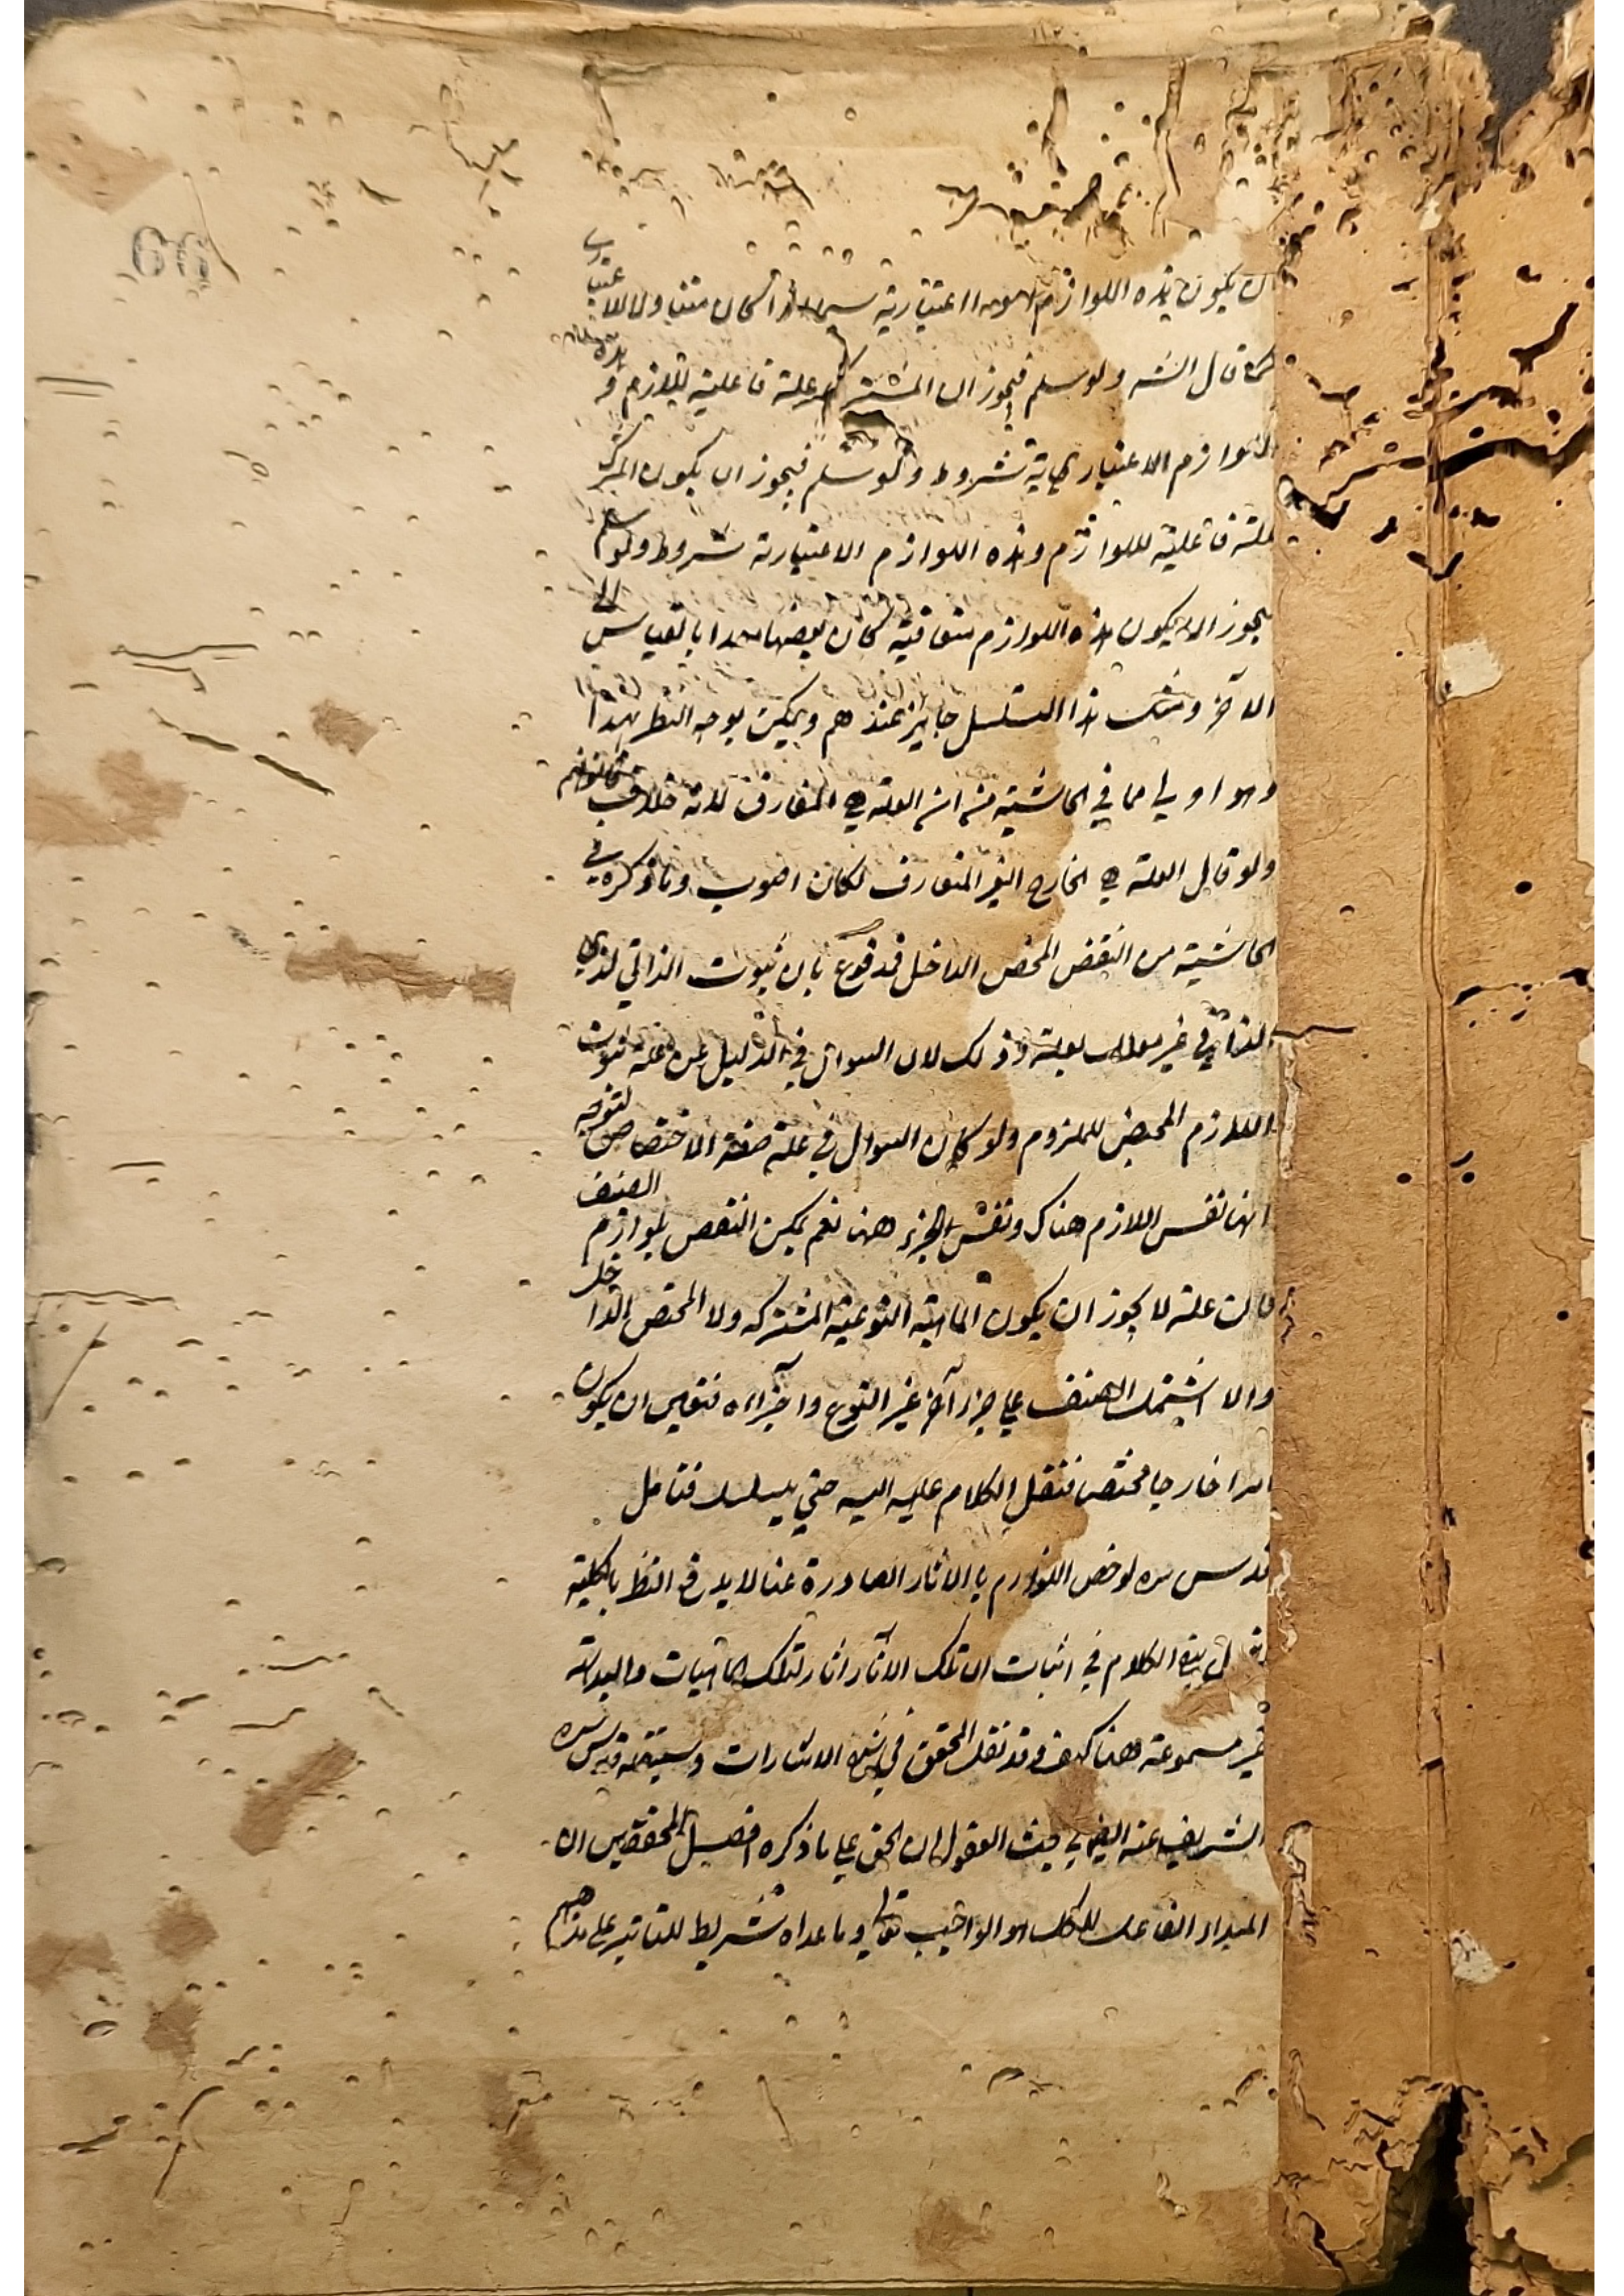 ان يكون هذه اللوازم امورا اعتبارية سيما اذا كان متناولا للاعتباري
كما قال الشه ولو سلم فيجوز ان المشترك علة فاعلية للازم و هذه
اللوازم الاعتبارية شروط ولو سلم فيجوز ان يكون المشترك
علة فاعلية للوازم وهذه اللوازم الاعتبارية شروط ولو سلم
يجوز ان يكون هذه اللوازم متعاقبة كان بعضها معدا بالقياس الى
الآخر ومثل هذا التسلسل جايز عندهم ويمكن يوجه النظر بهذا
وهو اولي مما في الحاشية من ان العلة هي المفارق لانه خلاف
ولو قال العلة هي الخارج الغير المفارق لكان اصوب وما ذكره في
الحاشية من النقض المختص الداخل فمدفوع بان ثبوت الذاتي لذي
الذاتي غير معلل بعلة وذلك لان السوال في الدليل عن علة ثبوت
اللازم المختص للملزوم ولو كان السوال في علة صفة الاختصاص لتوجه
انها نفس اللازم هناك ونفس الجزء ههنا نعم يمكن النقض بلوازم الصنف
فان علة لا يجوز ان يكون الماهية النوعية المشتركة ولا المختص الداخل
والا اشتمل الصنف علي جزء آخر غير النوع واجزاءه فتعين ان يكون
امرا خارجا مختصا فننقل الكلام عليه اليه حتي يتسلسل فتامل
قدس سره لو خص اللوازم بالاثار الصادرة عنها لا يدفع النظر بالكلية
بقي الكلام في اثبات ان تلك الآثار اثار لتلك الماهيات والبداهة
غير مسموعة ههنا كيف وقد نقل المحقق في شرح الاشارات وسينقله قدس سره
الشريف عنه ايضا في بحث العقول ان الحق علي ما ذكره افضل المحققين ان
المبداء الفاعل للكل هو الواجب تعالي وما عداه شرايط للتاثير علي مذهبهم